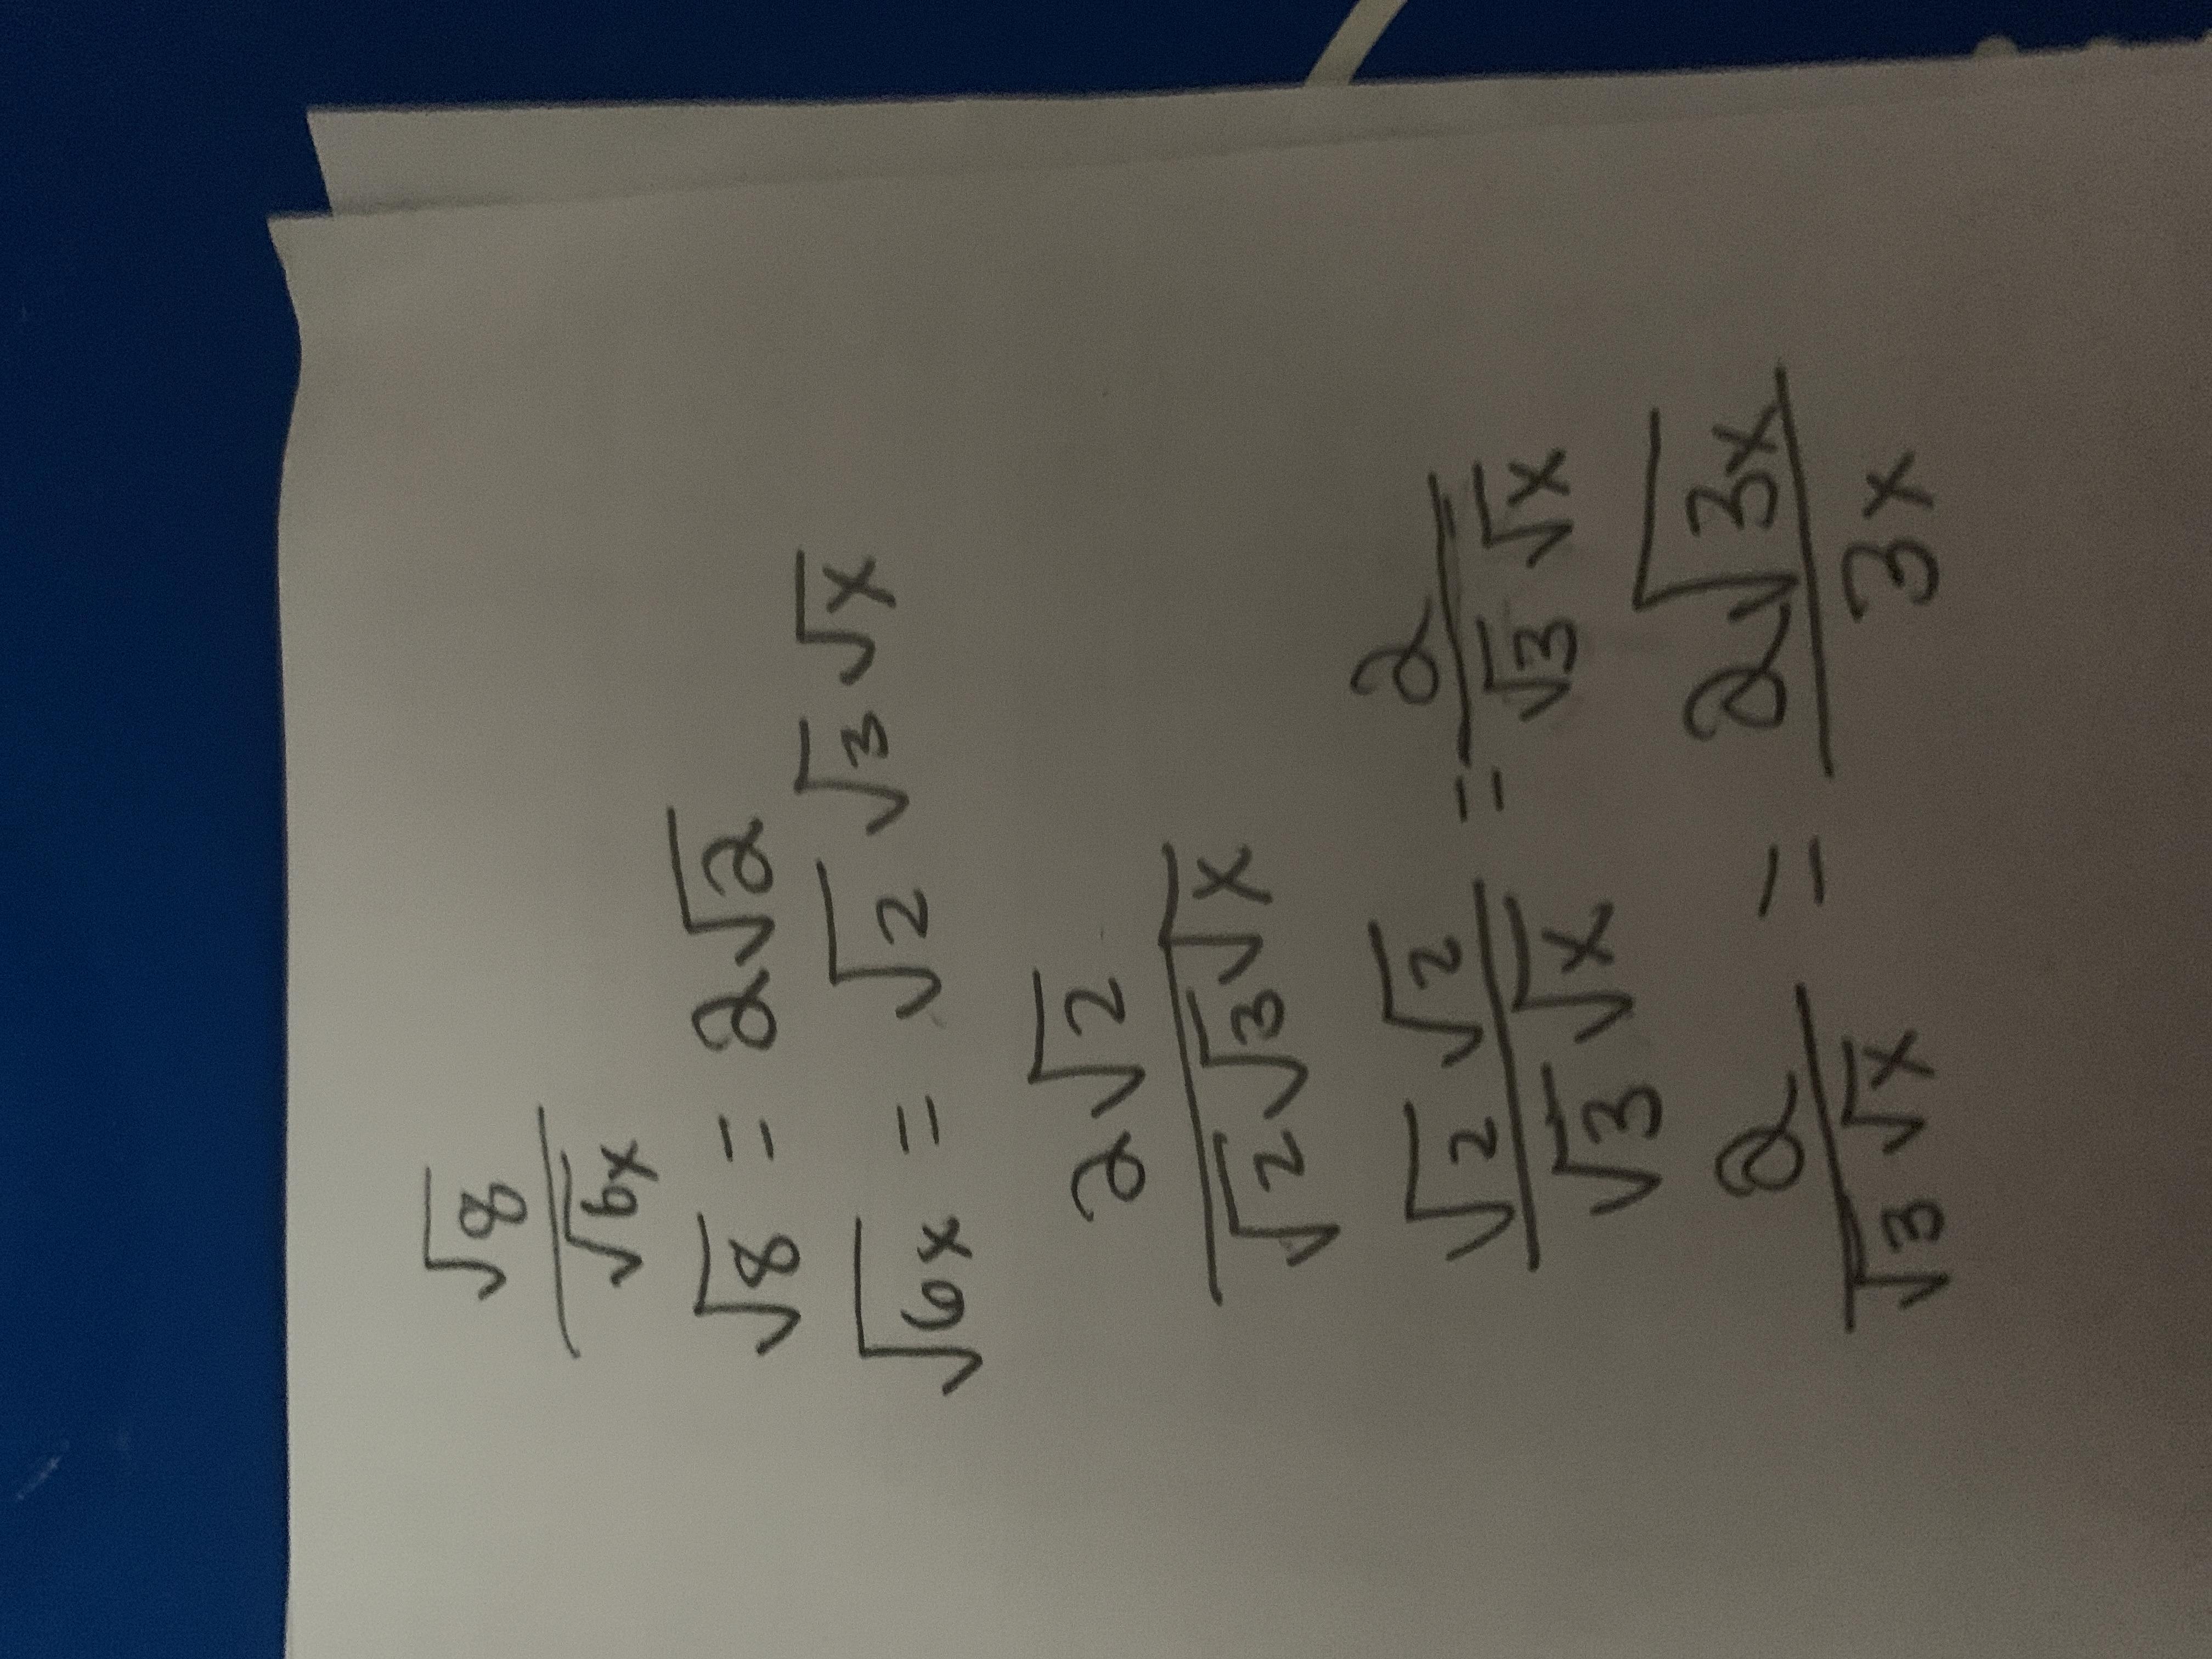 √8
√6x
√8 = 2√2
√6x = √2 √3 √x
2√2
√2 √3 √x
√2 √2 / √3 √x = 2 / √3 √x
2 / √3 √x = 2√3x / 3x